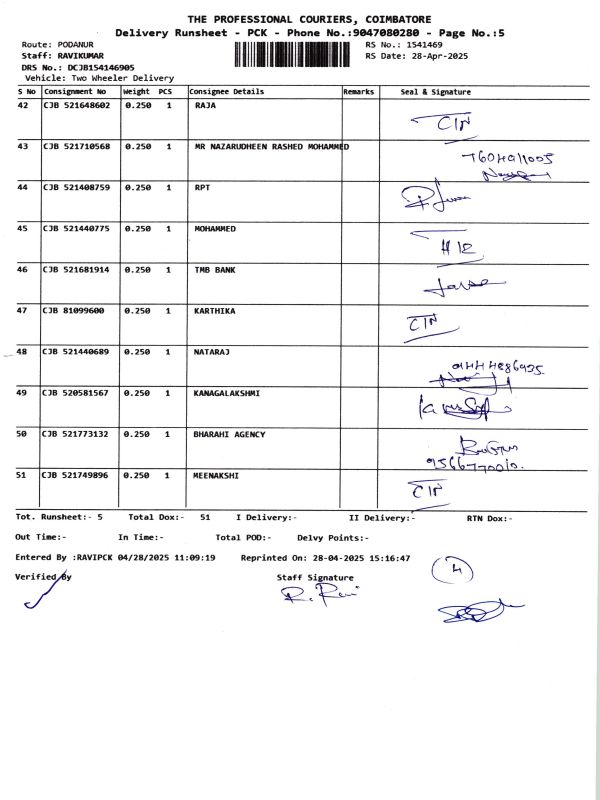 THE PROFESSIONAL COURIERS, COIMBATORE
Delivery Runsheet - PCK - Phone No.:9047080280 - Page No.:5
Route: PODANUR RS No.: 1541469
Staff: RAVIKUMAR RS Date: 28-Apr-2025
DRS No.: DCJB154146905
Vehicle: Two Wheeler Delivery
S No Consignment No Weight PCS Consignee Details Remarks Seal & Signature
42 CJB 521648602 0.250 1 RAJA
43 CJB 521710568 0.250 1 MR NAZARUDHEEN RASHED MOHAMMED
44 CJB 521408759 0.250 1 RPT
45 CJB 521440775 0.250 1 MOHAMMED
46 CJB 521681914 0.250 1 TMB BANK
47 CJB 81099600 0.250 1 KARTHIKA
48 CJB 521440689 0.250 1 NATARAJ
49 CJB 520581567 0.250 1 KANAGALAKSHMI
50 CJB 521773132 0.250 1 BHARAHI AGENCY
51 CJB 521749896 0.250 1 MEENAKSHI
Tot. Runsheet:- 5 Total Dox:- 51 I Delivery:- II Delivery:- RTN Dox:-
Out Time:- In Time:- Total POD:- Delvy Points:-
Entered By :RAVIPCK 04/28/2025 11:09:19 Reprinted On: 28-04-2025 15:16:47
Verified By Staff Signature
R. Ravi